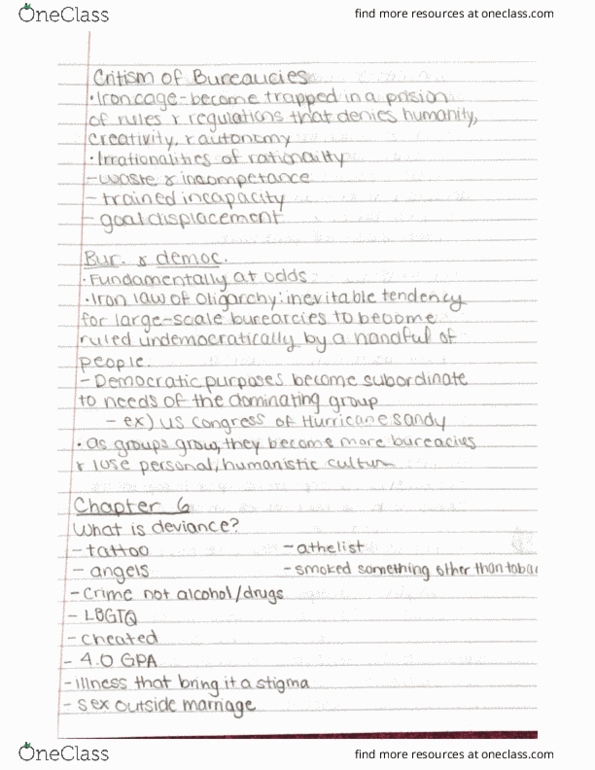 OneClass find more resources at oneclass.com
Critism of Bureaucies
• Iron cage - become trapped in a prision
of rules & regulations that denies humanity,
creativity, & autonomy
• Irrationalities of rationailty
- waste & incompetance
- trained incapacity
- goal displacement
Bur. & democ.
• Fundamentally at odds
• Iron law of oligarchy: inevitable tendency
for large-scale burearcies to become
ruled undemocratically by a handful of
people.
- Democratic purposes become subordinate
to needs of the dominating group
- ex) US Congress of Hurricane sandy
• as groups grow, they become more bureacies
& lose personal, humanistic culture
Chapter 6
What is deviance?
- tattoo - athelist
- angels - smoked something other than tobac
- Crime not alcohol/drugs
- LBGTQ
- cheated
- 4.0 GPA
- illness that bring it a stigma
- sex outside marriage
OneClass find more resources at oneclass.com